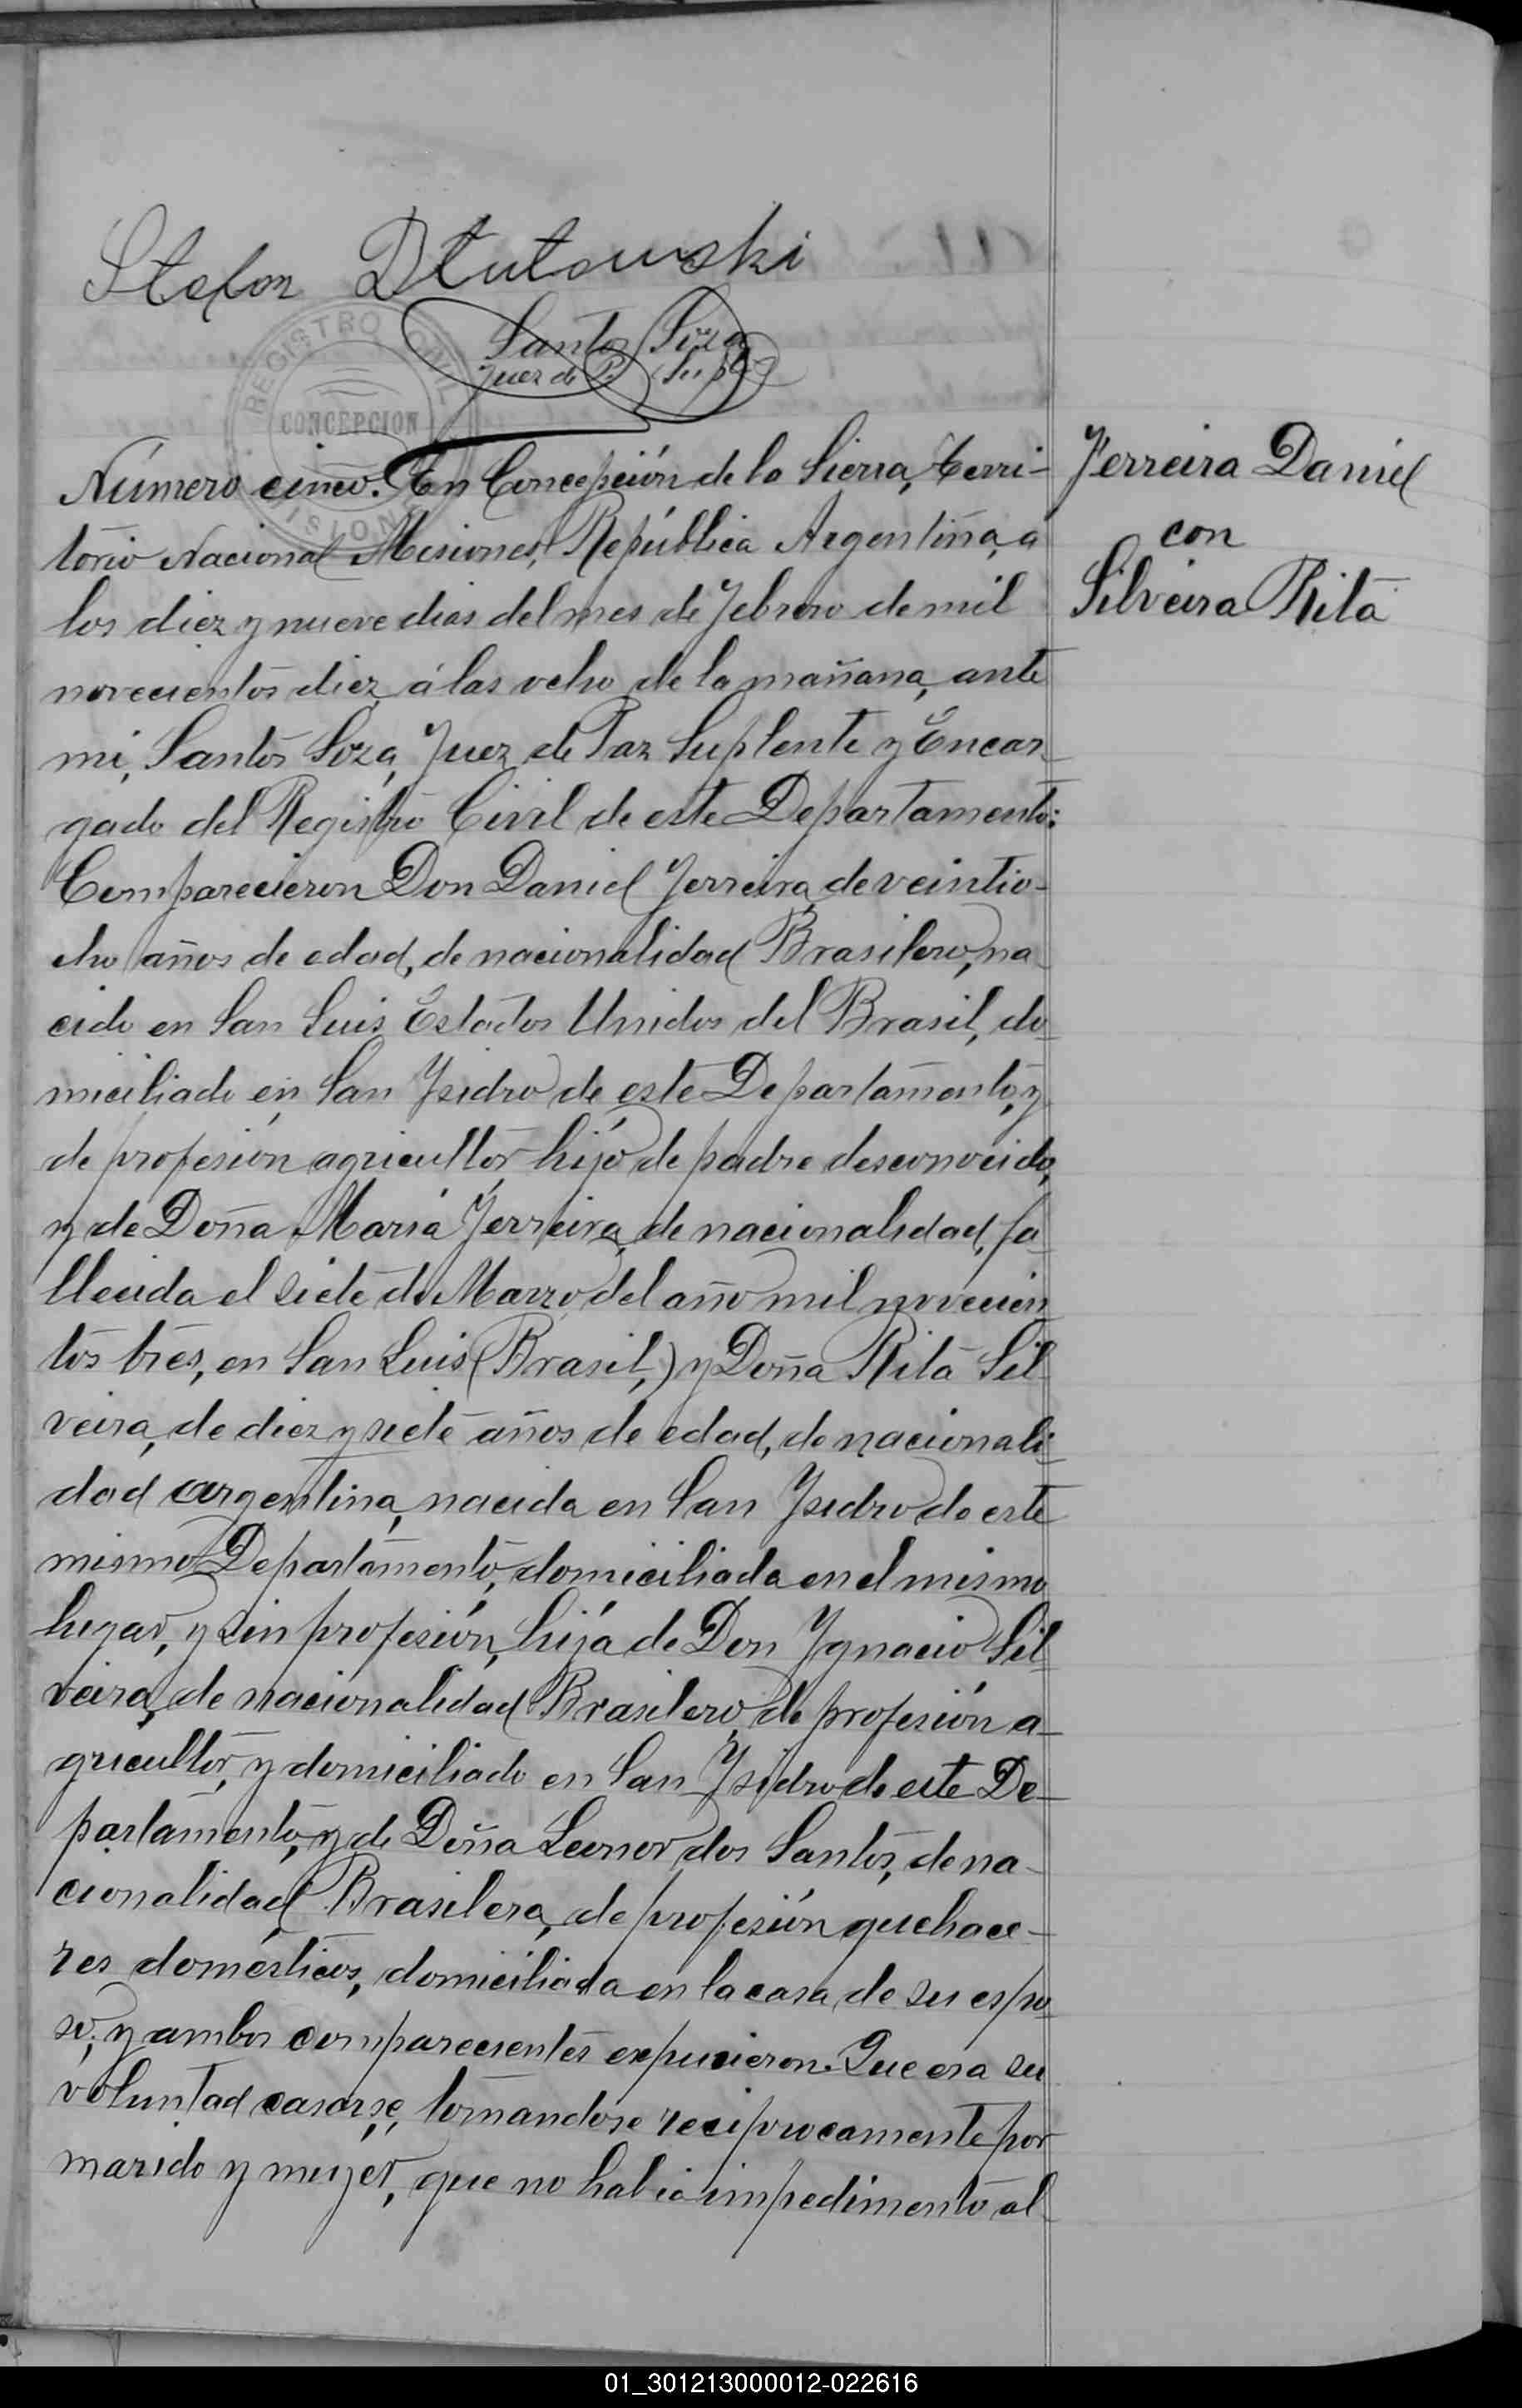 Stefan Dlutowski
Santos Soza
Juez de P. Supte
REGISTRO CIVIL
CONCEPCION
MISIONES
Número cinco. En Concepción de la Sierra, Terri-
torio Nacional Misiones, República Argentina, á
los diez y nueve dias del mes de Febrero de mil
novecientos diez á las ocho de la mañana, ante
mi, Santos Soza, Juez de Paz Suplente y Encar
gado del Registro Civil de este Departamento:
Comparecieron Don Daniel Ferreira, de veintio-
cho años de edad, de nacionalidad Brasilero, na
cido en San Luis Estados Unidos del Brasil, do
miciliado en San Ysidro de este Departamento, y
de profesión agricultor, hijo de padre desconocido,
y de Doña María Ferreira, de nacionalidad, fa
llecida el siete de Marzo del año mil novecien
tos tres, en San Luis (Brasil,) y Doña Rita Sil
veira, de diez y siete años de edad, de nacionali
dad argentina, nacida en San Ysidro de este
mismo Departamento, domiciliada en el mismo
lugar, y sin profesión, hija de Don Ygnacio Sil
veira, de nacionalidad Brasilero, de profesión a-
gricultor, y domiciliado en San Ysidro de este De-
partamento, y de Doña Leonor dos Santos, de na-
cionalidad Brasilera, de profesión quehace-
res domésticos, domiciliada en la casa de su espo
so; y ambos comparecientes expusieron: Que era su
voluntad casarse, tomandose reciprocamente por
marido y mujer, que no habia impedimento al
Ferreira Daniel
con
Silveira Rita
01_301213000012-022616